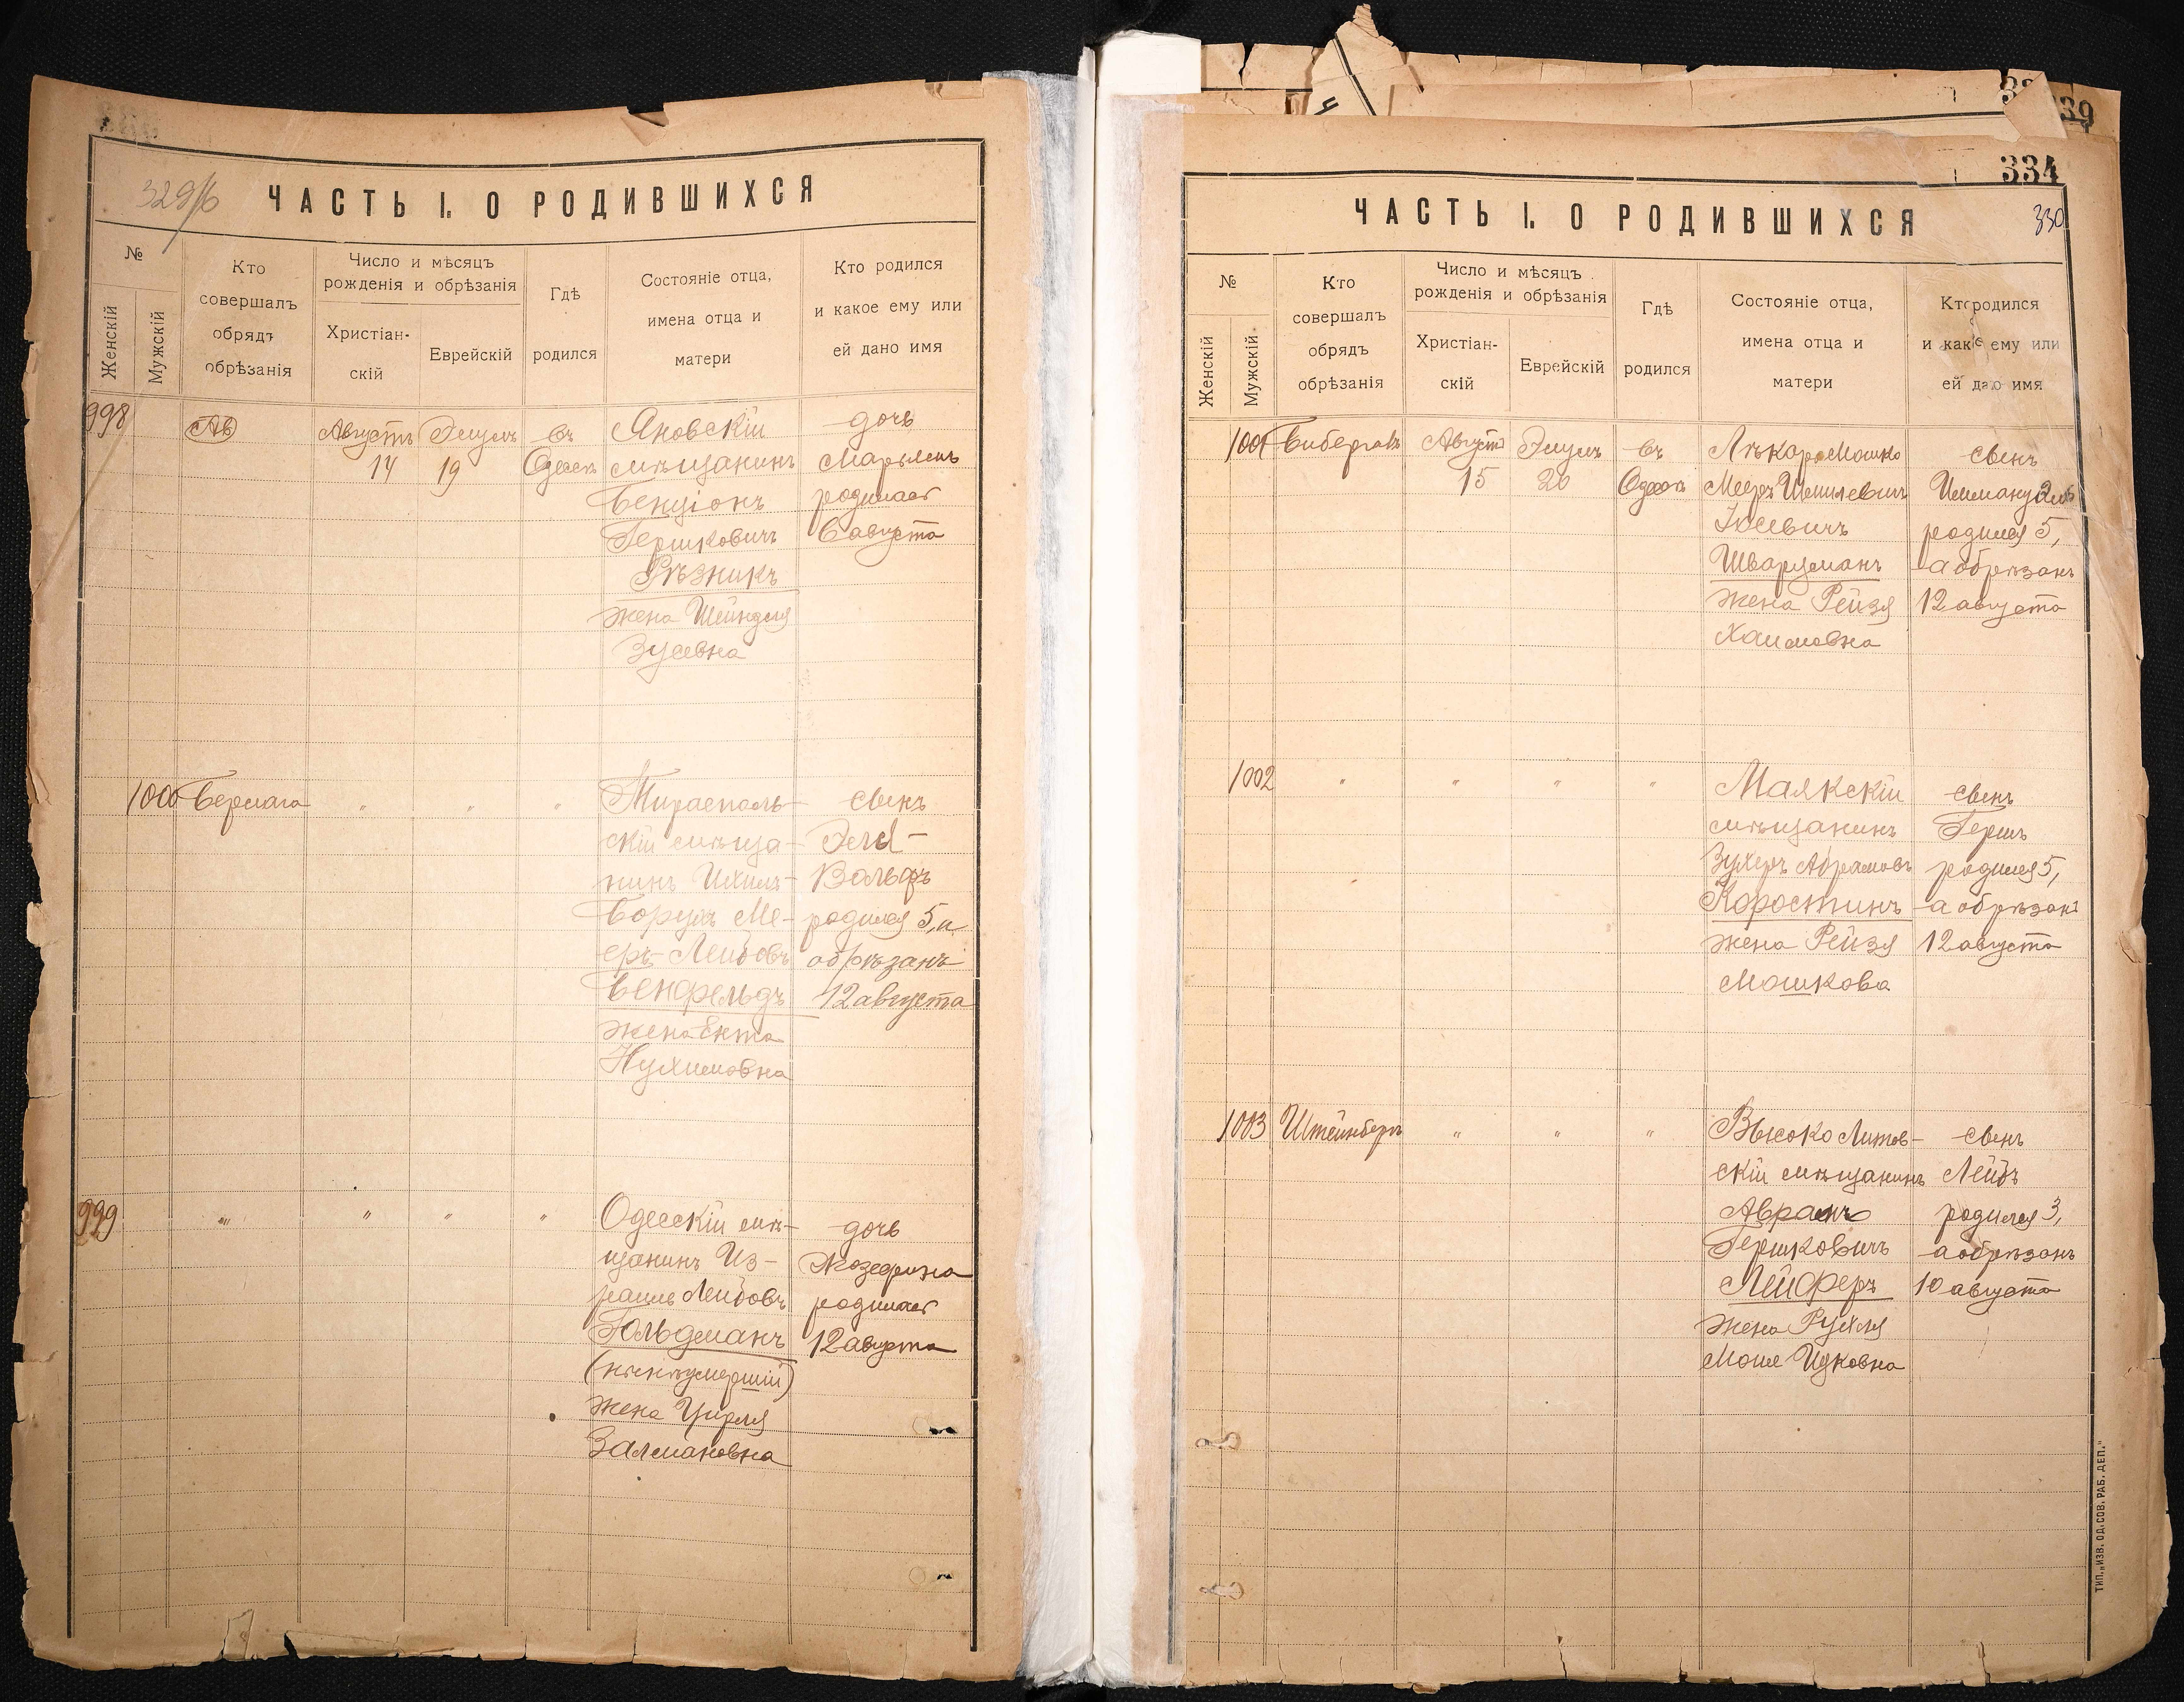 329/б
ЧАСТЬ I. О РОДИВШИХСЯ
№
Женскій
Мужскій
Кто
совершалъ
обрядъ
обрѣзанія
Число и мѣсяцъ
рожденія и обрѣзанія
Христіан-
скій
Еврейскій
Гдѣ
родился
Состояніе отца,
имена отца и
матери
Кто родился
и какое ему или
ей дано имя
998
Августъ
14
Элулъ
19
въ
Одессѣ
Яновскій
мѣщанинъ
Бенціонъ
Гершковичъ
Рѣзникъ
жена Шейндля
Зусевна
дочь
Марьямъ
родилась
6 августа
1000
" " "
Тирасполь-
скій мѣща-
нинъ Ихиль-
Борухъ Ме-
еръ Лейбовъ
Бенфельдъ
жена Ента
Нухимовна
сынъ
Вольфъ
родился 5, и
обрѣзанъ
12 августа
999
" " " "
Одесскій мѣ-
щанинъ Из-
раиль Лейбовъ
Гольдманъ
жена Цирля
Залмановна
дочь
Жозефина
родилась
12 августа
334
330
ЧАСТЬ I. О РОДИВШИХСЯ
№
Женскій
Мужскій
Кто
совершалъ
обрядъ
обрѣзанія
Число и мѣсяцъ
рожденія и обрѣзанія
Христіан-
скій
Еврейскій
Гдѣ
родился
Состояніе отца,
имена отца и
матери
Кто родился
и какое ему или
ей дано имя
1001
Августъ
15
Элулъ
20
въ
Одессѣ
Лѣкарь Мошко
Мееръ Шмилевичъ
Шварцманъ
жена Рейзя
Хаимовна
сынъ
Иммануэль
родился 5,
а обрѣзанъ
12 августа
1002
" " " "
Маякскій
мѣщанинъ
Зухеръ Абрамовъ
Коростинъ
жена Рейзя
Мошкова
сынъ
Гершъ
родился 5,
а обрѣзанъ
12 августа
1003
Штейнбергъ
" " "
Высоко Литов-
скій мѣщанинъ
Абрамъ
Гершковичъ
Лейферъ
жена Рухля
Моше Ицковна
сынъ
Лейбъ
родился 3,
а обрѣзанъ
10 августа
ТИП. „ИЗВ. ОД. СОВ. РАБ. ДЕП."